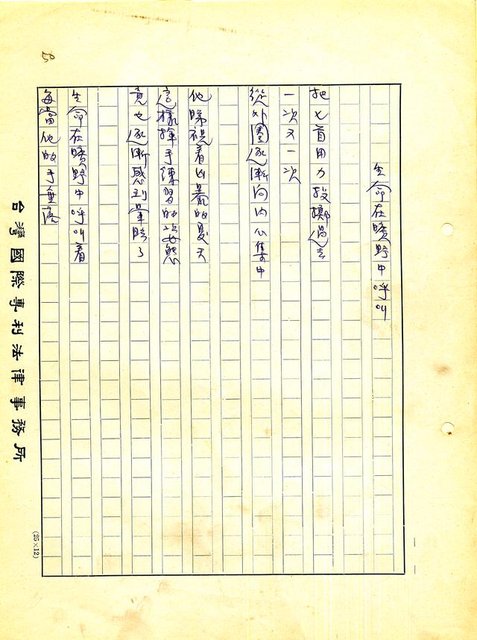 生命在曠野中呼叫
把匕首用力投擲過去
一次又一次
從外圍逐漸向內心集中
他睇視着凶暴的夏天
這樣揮手練習的姿態
竟也逐漸感到暈眩了
生命在曠野中呼叫着
每當他的手垂落
台灣國際專利法律事務所
(25×12)